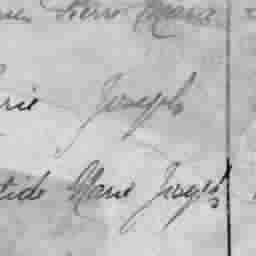 Pierre Marie
rie Joseph
tide Marie Joseph